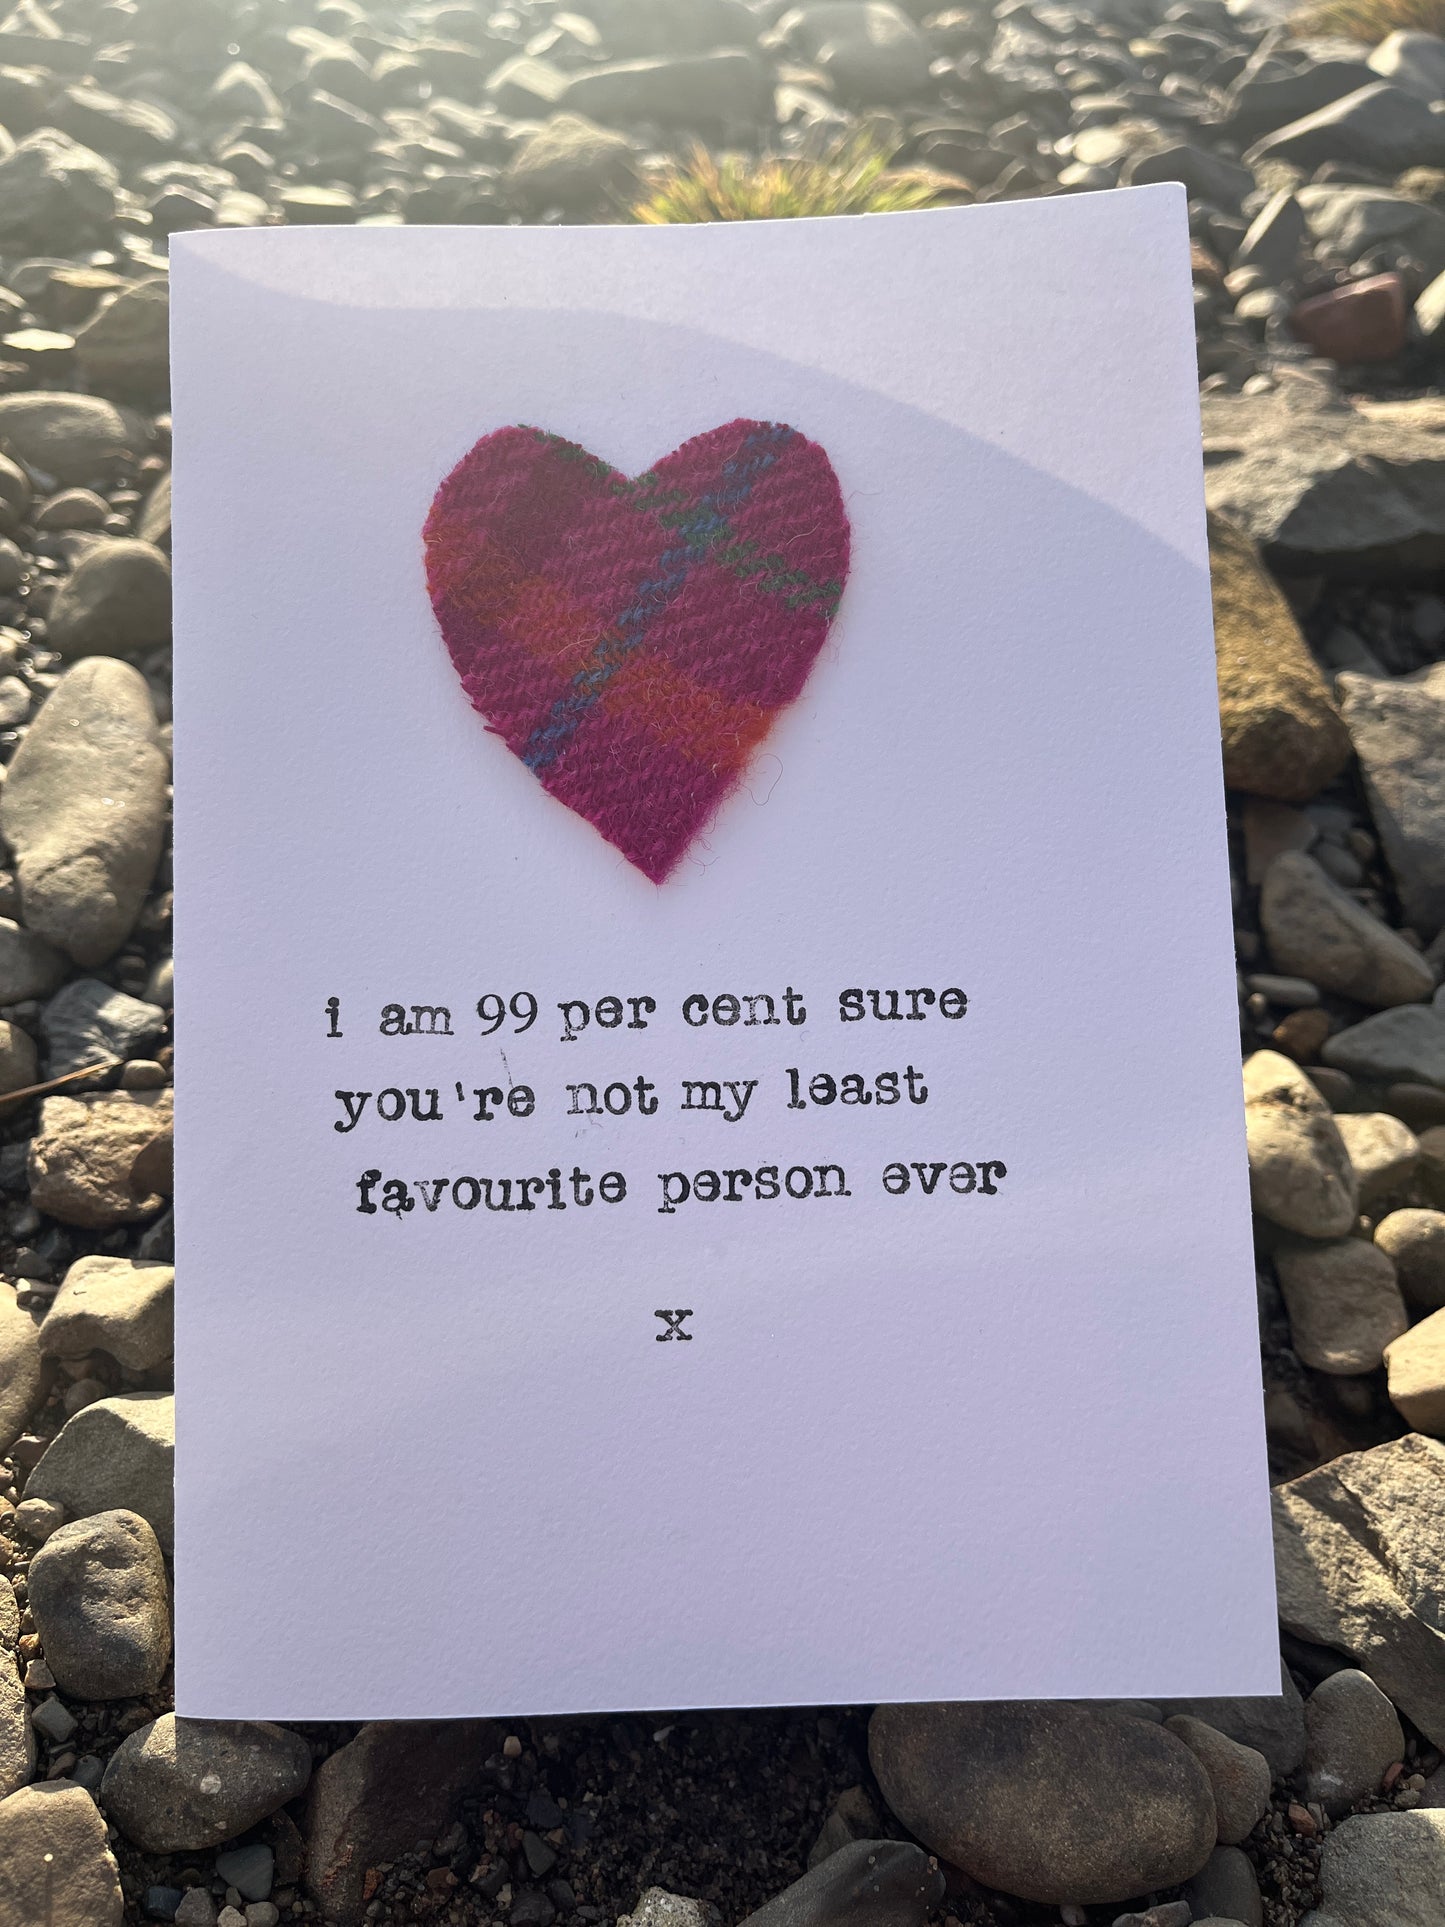 i am 99 per cent sure
you're not my least
favourite person ever
x